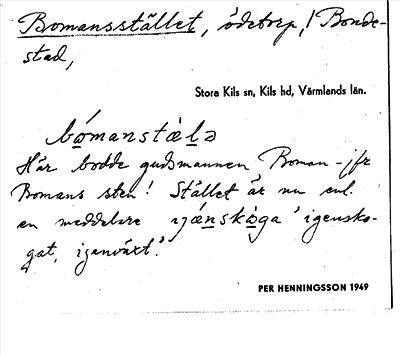 Bomansstället, ödetorp, / Bonde-
stad,
Stora Kils sn, Kils hd, Värmlands län.
bo̱manstäl̲ə
Här bodde gudsmannen Boman – jfr
Bomans sten! Stället är nu enl.
en meddelare "jǽnskò̱ga" igensko-
gat, igenväxt".
PER HENNINGSSON 1949